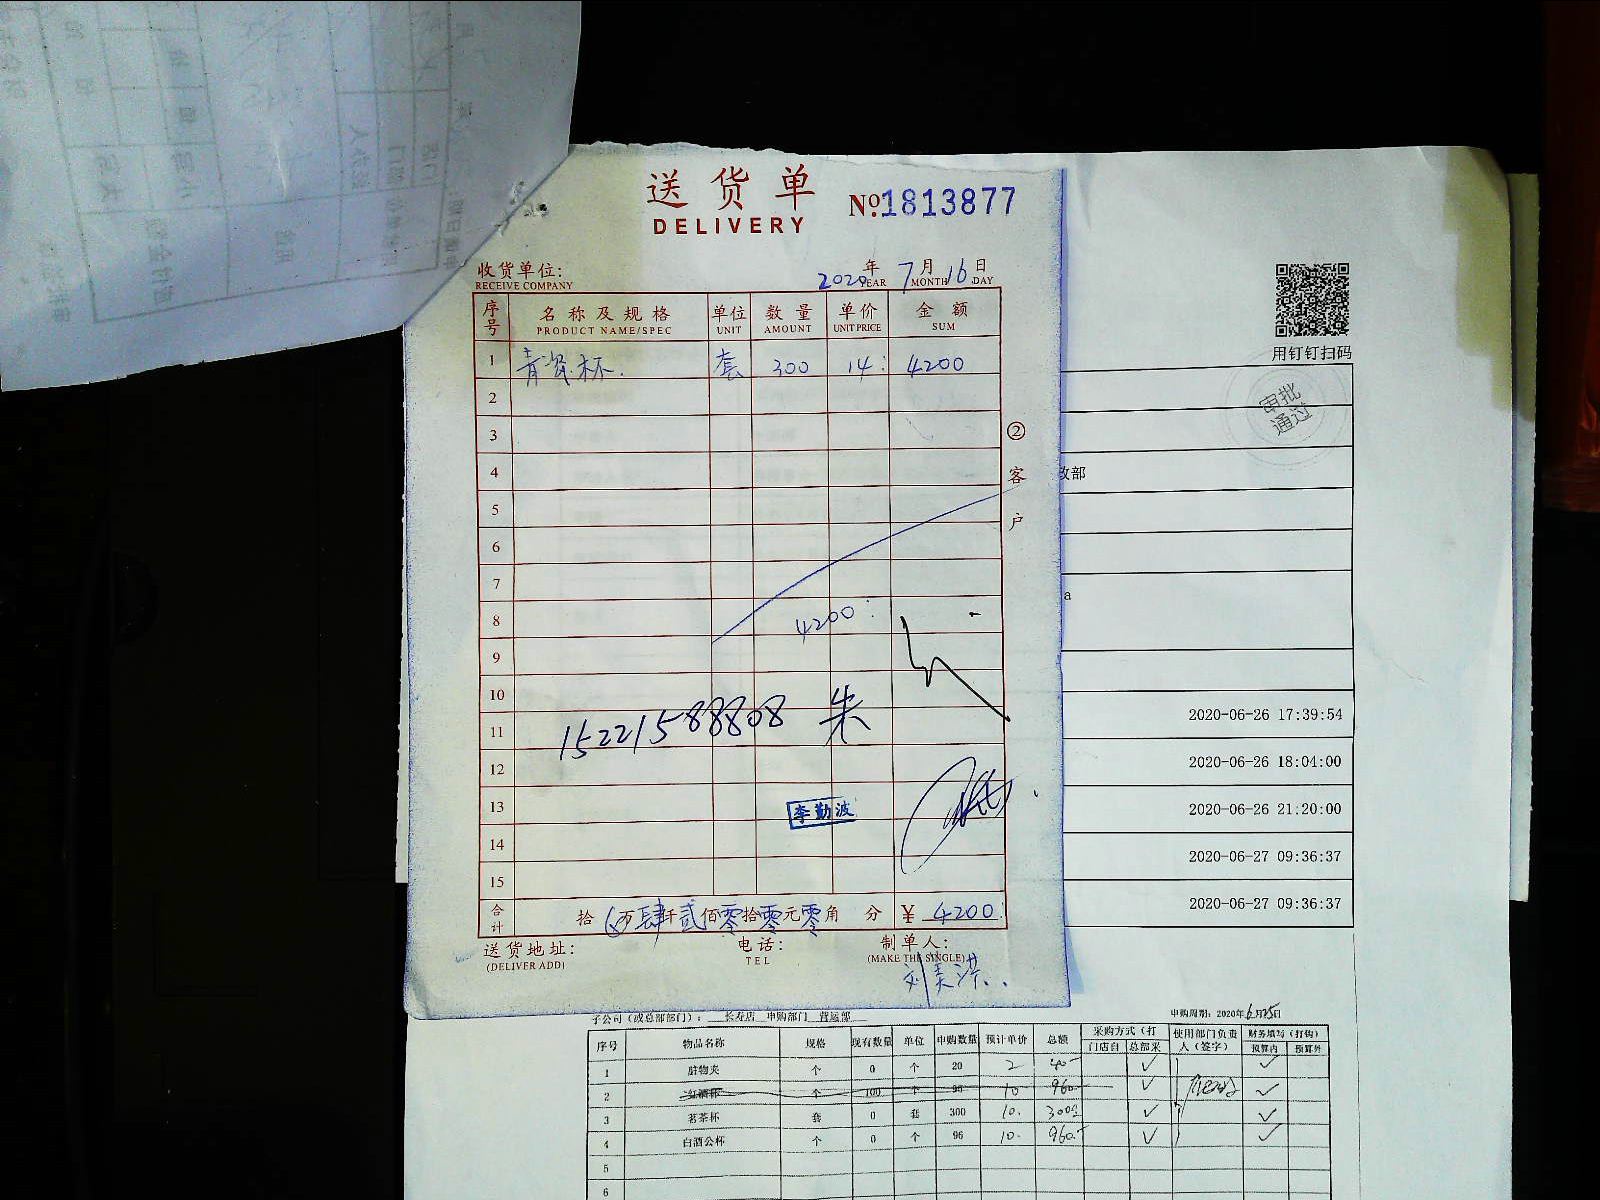 送货单
DELIVERY
No1813877
收货单位:
RECEIVE COMPANY
2020年 7月 16日
YEAR MONTH DAY
序号 名称及规格 单位 数量 单价 金额
PRODUCT NAME/SPEC UNIT AMOUNT UNIT PRICE SUM
1 青瓷杯. 套 300 14: 4200
2
3
4
5
6
7
8 4200:
9
10
11 15221588808 朱
12
13 李勤波
14
15
合计 拾 万肆仟贰佰零拾零元零角 分 ¥ 4200:
送货地址: 电话: 制单人:
(DELIVER ADD) TEL (MAKE THE SINGLE)
②客户
用钉钉扫码
审批通过
政部
a
2020-06-26 17:39:54
2020-06-26 18:04:00
2020-06-26 21:20:00
2020-06-27 09:36:37
2020-06-27 09:36:37
子公司(或总部部门): 长寿店 申购部门 营运部 申购周期: 2020年6月25日
序号 物品名称 规格 现有数量 单位 申购数量 预计单价 总额 采购方式(打 使用部门负责人(签字) 财务填写(打钩)
门店自 总部采 预算内 预算外
1 脏物夹 个 0 个 20 2 40
2 红酒杯 个 100 个 96 10 960
3 茗茶杯 套 0 套 300 10. 3000
4 白酒公杯 个 0 个 96 10. 960
5
6